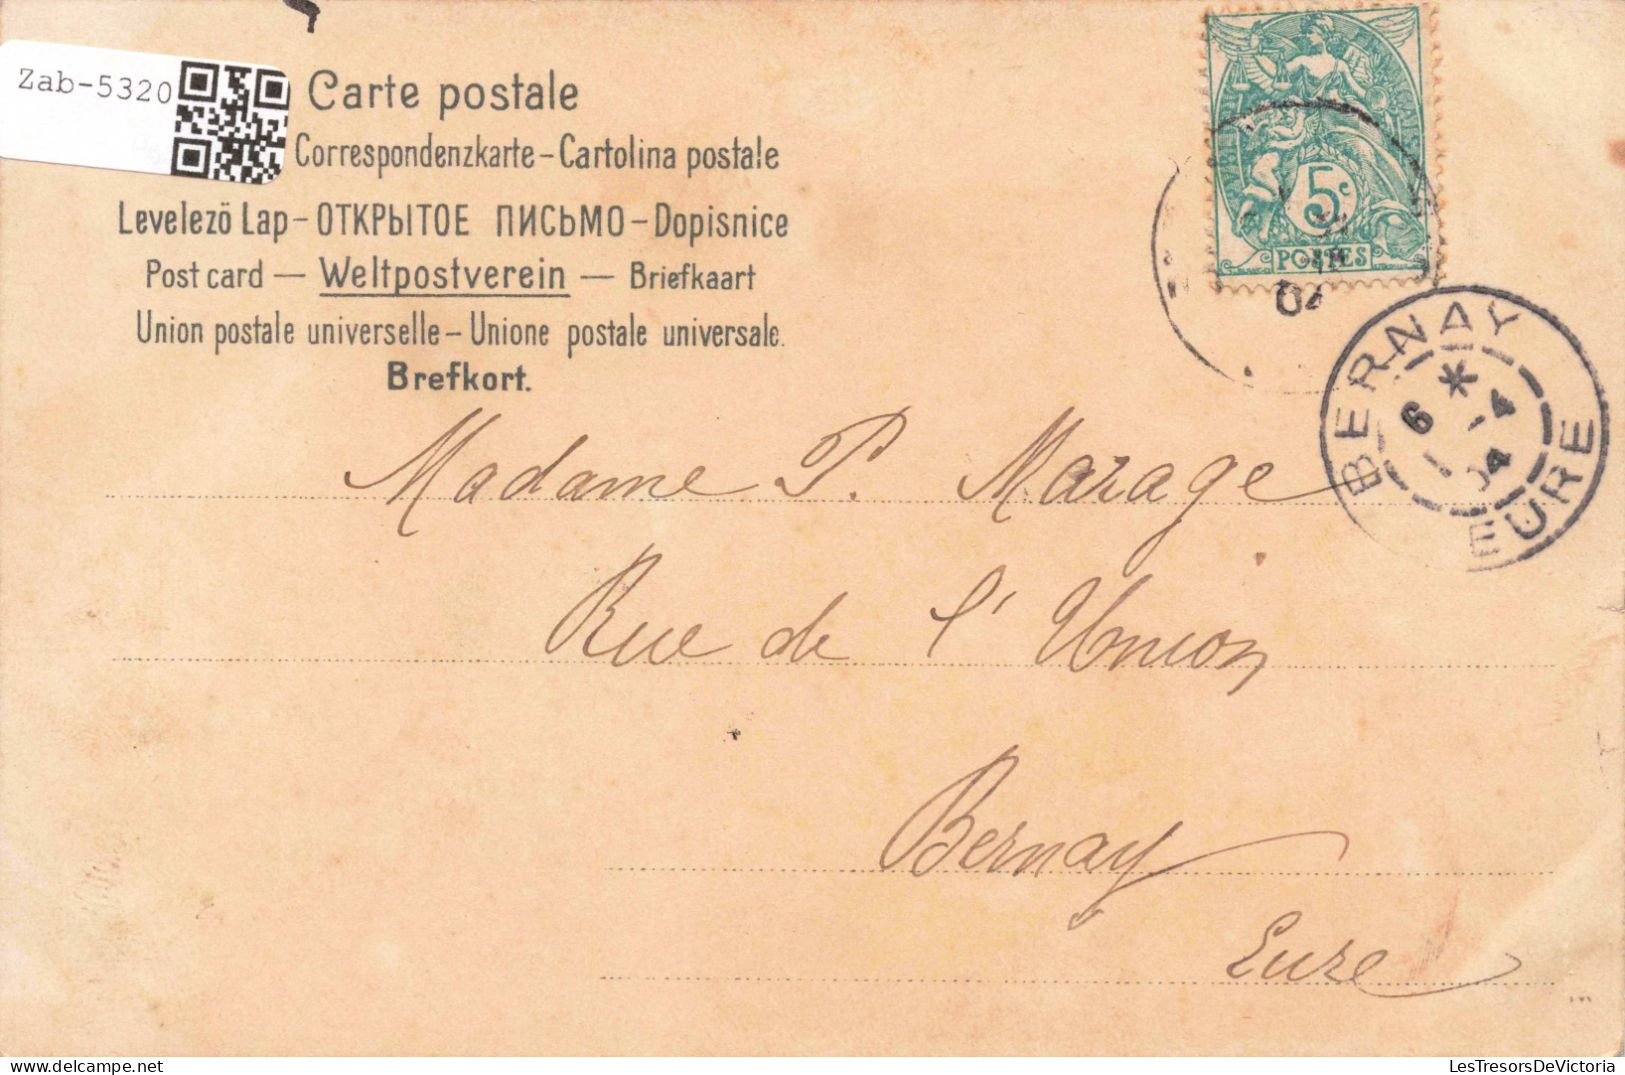 Zab-5320
Carte postale
Correspondenzkarte – Cartolina postale
Levelező Lap – ОТКРЫТОЕ ПИСЬМО – Dopisnice
Post card — Weltpostverein — Briefkaart
Union postale universelle – Unione postale universale.
Brefkort.
5c
POSTES
04
BERNAY
6 * -4
04
EURE
Madame P. Marage
Rue de l'Union
Bernay
Eure
LesTresorsDeVictoria